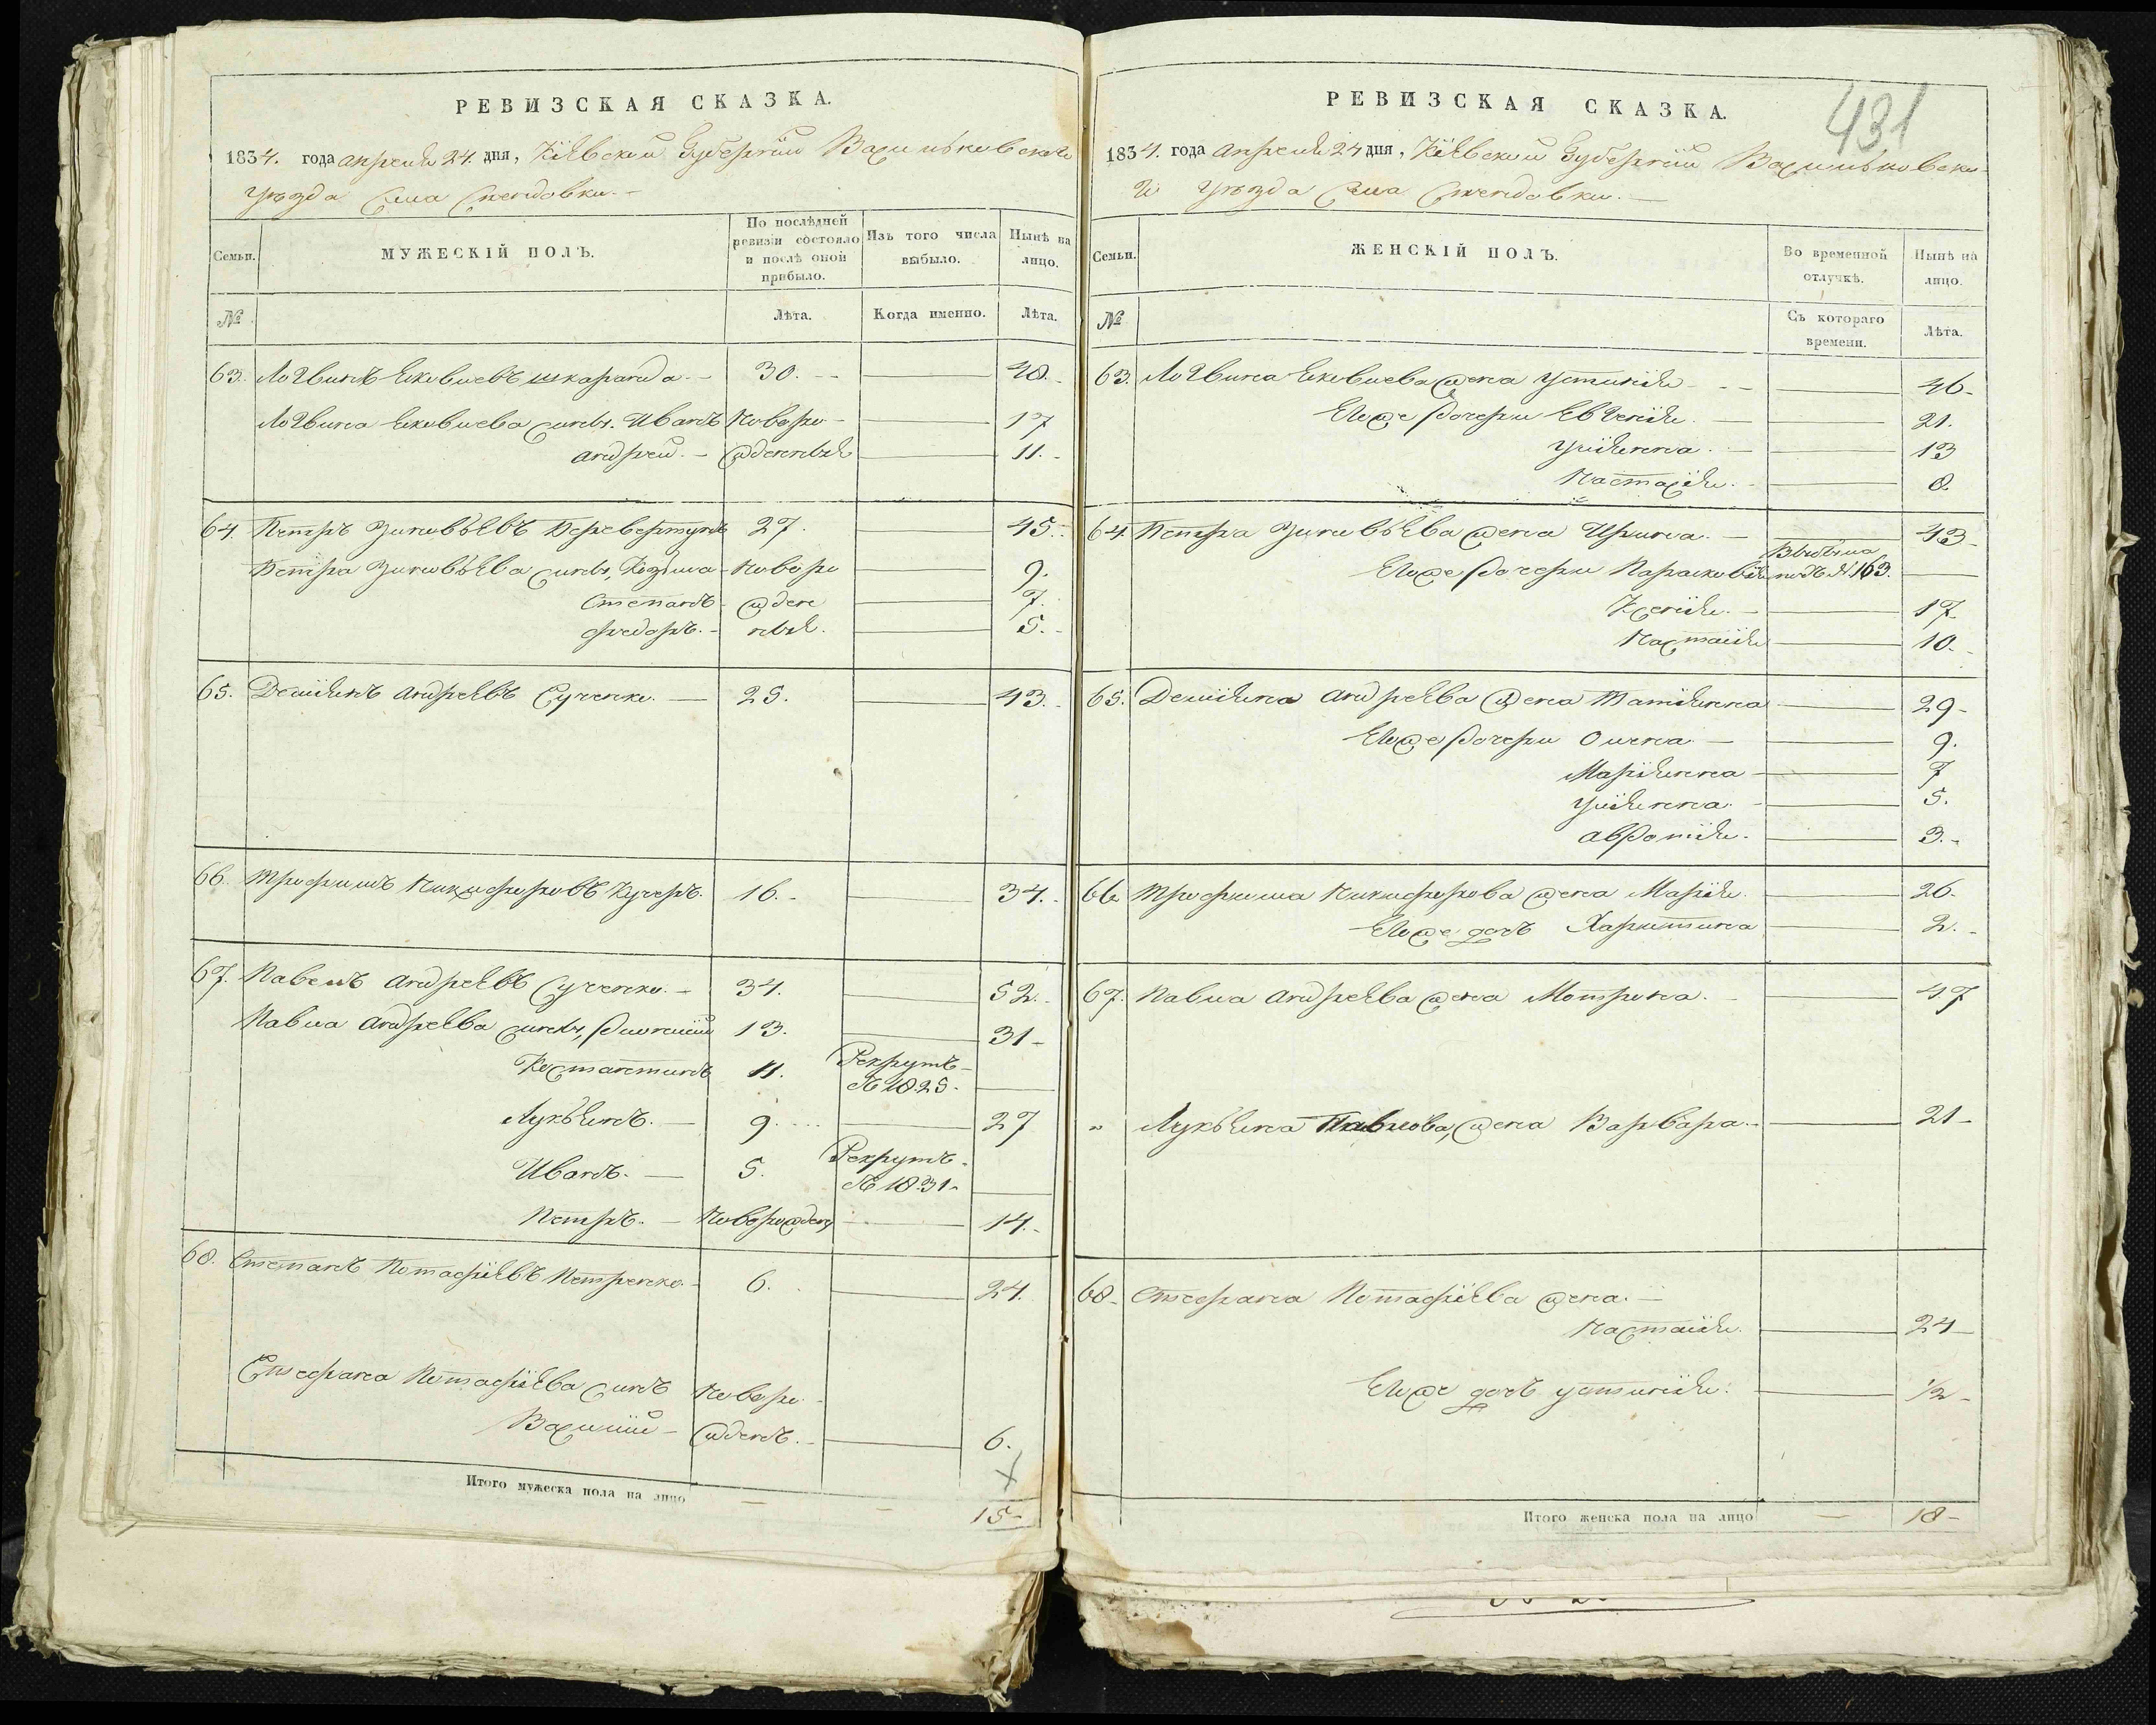 РЕВИЗСКАЯ СКАЗКА.
1834. года апреля 24. дня, Кіевской Губерніи Васильковскаго
уѣзда Села
Семьи. МУЖЕСКІЙ ПОЛЪ. По послѣдней ревизіи состояло и послѣ оной прибыло. Изъ того числа выбыло. Нынѣ на лицо.
№ Лѣта. Когда именно. Лѣта.
63. Логвинъ Яковлевъ шкаранда 30. 48.
Логвина Яковлева сыновья. Иванъ Новоро 17
андрей. жденныя 11.
64. Петръ Зиновьевъ Перевертунъ 27. 45.
Петра Зиновьева сыновья, Козьма Новоро 9.
Степанъ жден 7.
Федоръ. ныя. 5.
65. Деміянъ андреевъ Сученко. 25. 43.
66. Трофимъ Никифоровъ Кучеръ. 16. 34.
67. Павелъ андреевъ Сученко. 34. 52.
Павла андреева сыновья, 13. 31
Костантинъ 11. Рекрутъ
въ 1825.
Лукьянъ. 9. 27
Иванъ. 5. Рекрутъ.
въ 1831.
Петръ. Новорожден 14.
68. Степанъ Потапіевъ Петренко. 6. 24.
Стефана Потапіева сынъ Новоро
Василий жденъ. 6.
Итого мужеска пола на лицо 15
431
РЕВИЗСКАЯ СКАЗКА.
1834. года апреля 24 дня, Кіевской Губерніи Васильковска
го уѣзда Села
Семьи. ЖЕНСКІЙ ПОЛЪ. Во временной отлучкѣ. Нынѣ на лицо.
№ Съ котораго времени. Лѣта.
63. Логвина Яковлева жена Устинія 46
Егоже дочери Евгенія. 21.
Уліянна. 13
Настасія. 8.
64. Петра Зиновьева жена Ирина. 43
Егоже дочери Парасковія Выбыла
подъ № 163.
Ксенія. 17
Настасія 10.
65. Деміяна андреева жена Татіянна 29
Егоже дочери Олена. 9.
Маріянна 7
Уліянна. 5.
авдотія. 3.
66 Трофима Никифорова жена Марія. 26.
Егоже дочь Харитина 2.
67. Павла андреева жена Мотрона. 47
" Лукьяна Павлова, жена Варвара. 21
68. Стефана Потапіева жена.
Настасія. 24
Егоже дочь устинія. 1/2
Итого женска пола на лицо 18